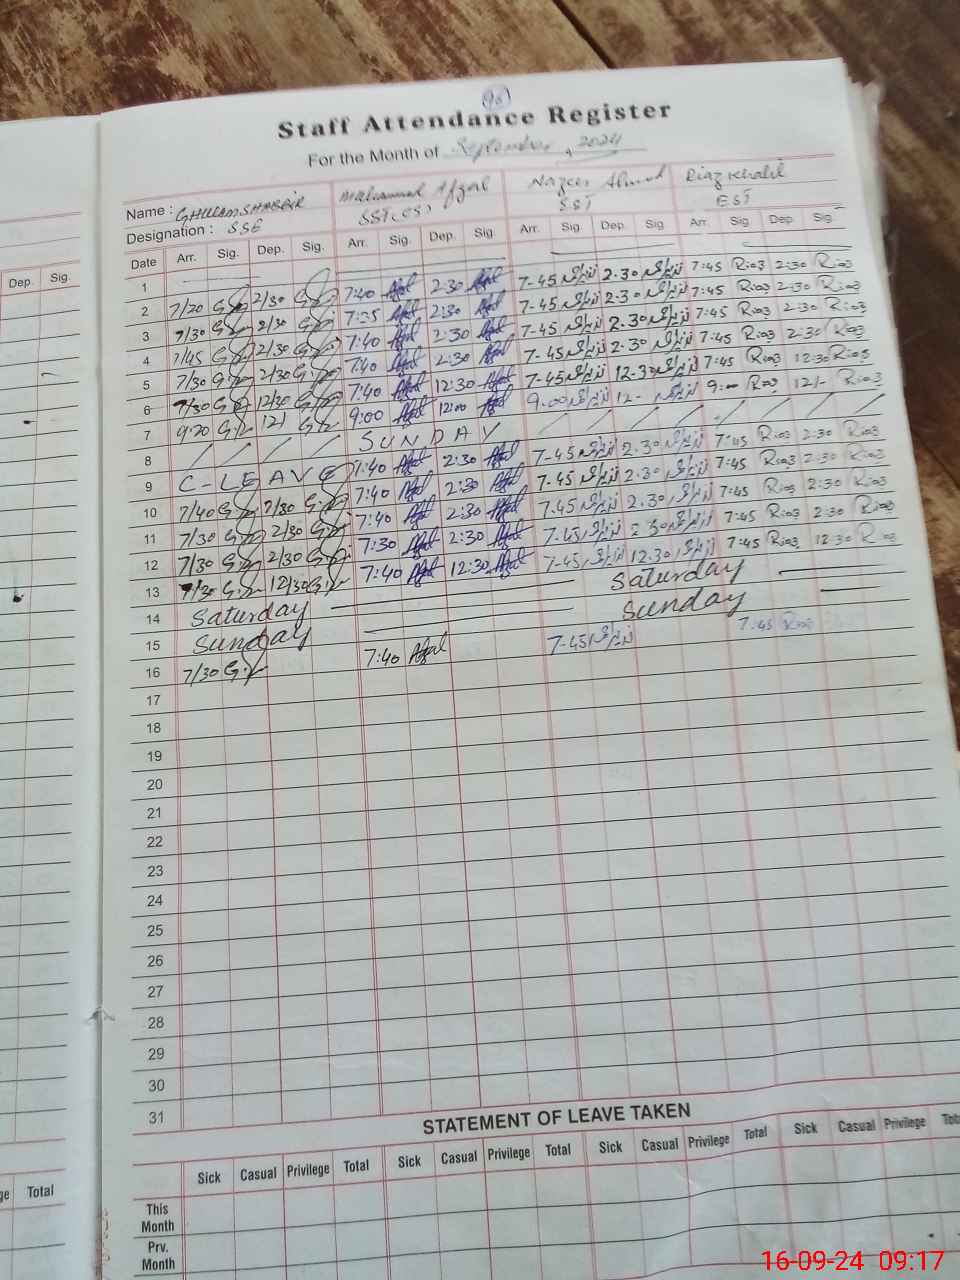 96
Staff Attendance Register
For the Month of September, 2024
Name : GHULAM SHABBIR Muhammad Afzal Nazeer Ahmed Riaz Khalil
Designation : SSE SST(CS) SST EST
Dep. Sig. Date Arr. Sig. Dep. Sig. Arr. Sig. Dep. Sig Arr. Sig. Dep. Sig Arr. Sig Dep. Sig.
1
2 7/20 2/30 7:40 Afzal 2:30 Afzal 7-45 نذیر 2.30 نذیر 7:45 Riaz 2:30 Riaz
3 7/30 2/30 7:35 Afzal 2:30 Afzal 7-45 نذیر 2.30 نذیر 7:45 Riaz 2:30 Riaz
4 7/45 2/30 7:40 Afzal 2:30 Afzal 7-45 نذیر 2.30 نذیر 7:45 Riaz 2:30 Riaz
5 7/30 2/30 7:40 Afzal 2:30 Afzal 7-45 نذیر 2.30 نذیر 7:45 Riaz 2:30 Riaz
6 7/30 12/30 7:40 Afzal 12:30 Afzal 7-45 نذیر 12.30 نذیر 7:45 Riaz 12:30 Riaz
7 9:20 12/ 9:00 Afzal 12:00 Afzal 9.00 نذیر 12- نذیر 9:00 Riaz 12/- Riaz
8 SUNDAY
9 C-LEAVE 7:40 Afzal 2:30 Afzal 7-45 نذیر 2.30 نذیر 7:45 Riaz 2:30 Riaz
10 7/40 2/30 7:40 Afzal 2:30 Afzal 7-45 نذیر 2.30 نذیر 7:45 Riaz 2:30 Riaz
11 7/30 2/30 7:40 Afzal 2:30 Afzal 7-45 نذیر 2.30 نذیر 7:45 Riaz 2:30 Riaz
12 7/30 2/30 7:30 Afzal 2:30 Afzal 7-45 نذیر 2.30 نذیر 7:45 Riaz 2:30 Riaz
13 7/30 12/30 7:40 Afzal 12:30 Afzal 7-45 نذیر 12.30 نذیر 7:45 Riaz 12:30 Riaz
14 Saturday Saturday
15 Sunday Sunday
16 7/30 7:40 Afzal 7-45 نذیر 7:45 Riaz
17
18
19
20
21
22
23
24
25
26
27
28
29
30
31
STATEMENT OF LEAVE TAKEN
Total Sick Casual Privilege Total Sick Casual Privilege Total Sick Casual Privilege Total Sick Casual Privilege
This Month
Prv. Month
16-09-24 09:17